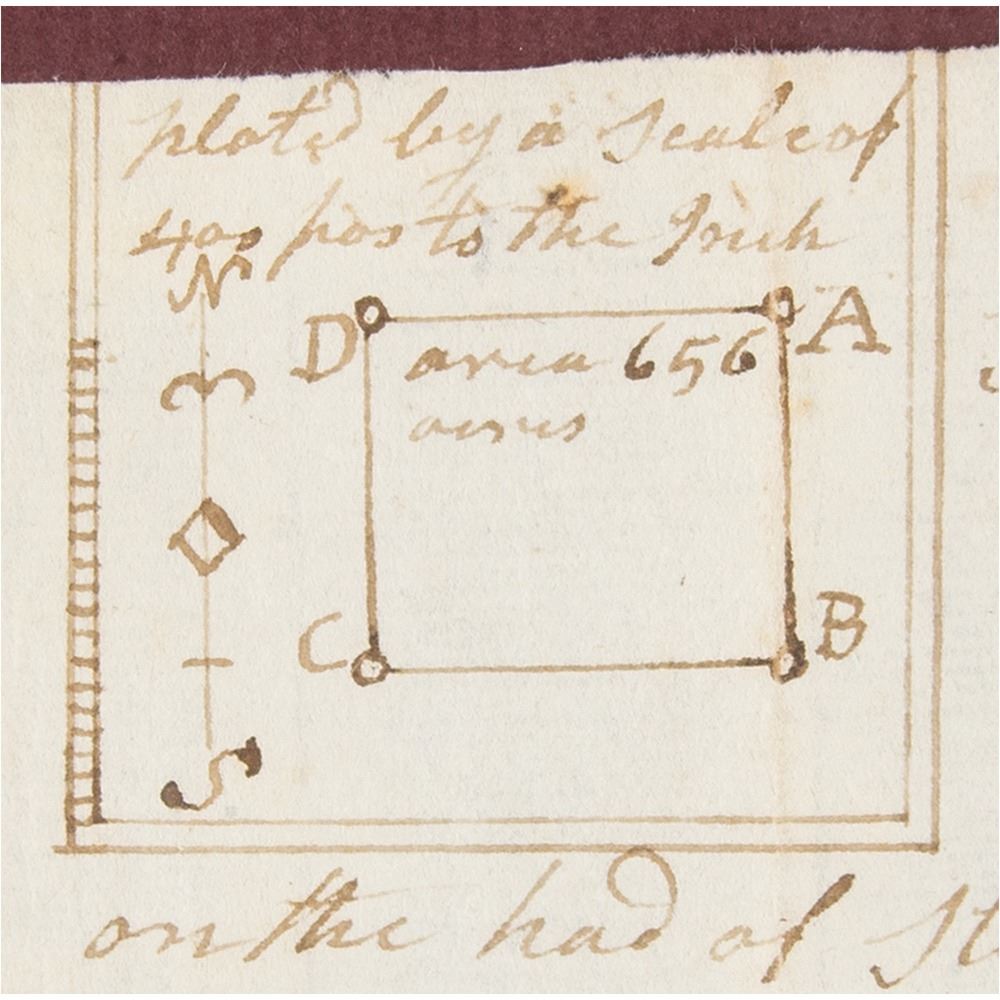 plotd by a Scale of
400 pos to the Inch
N
D A
area 656
acres
C B
S
on the had of St